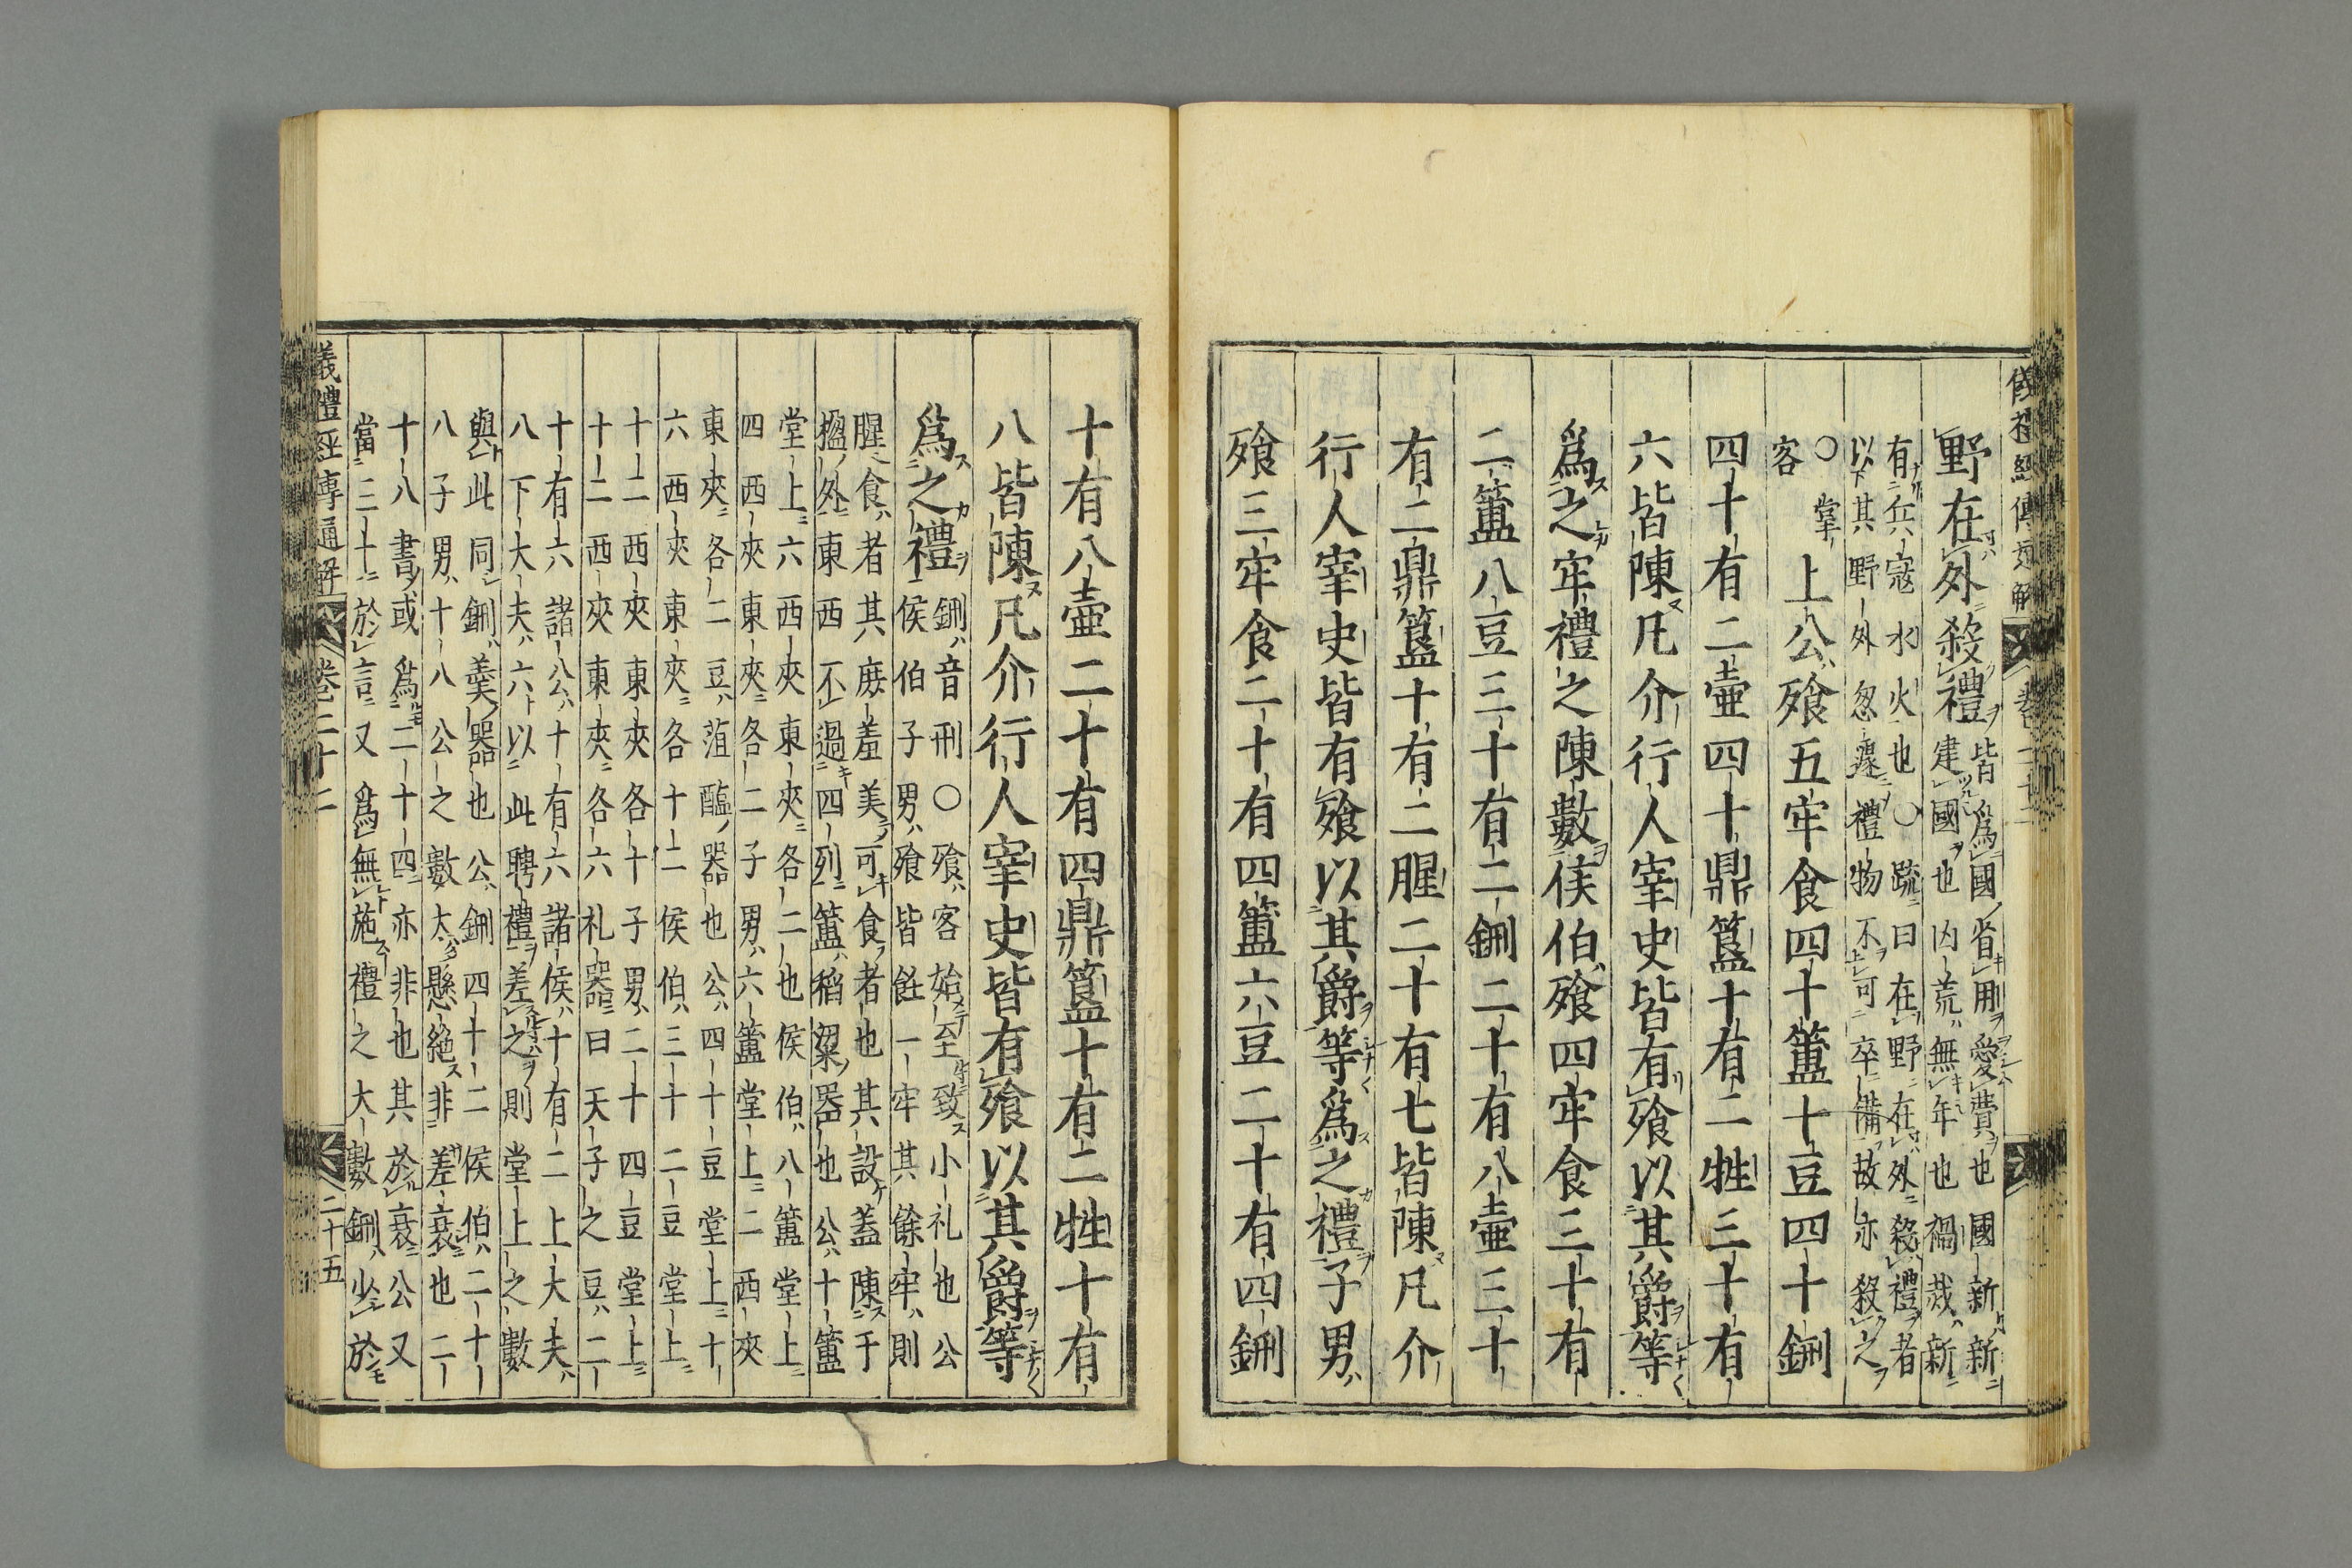 野在外殺禮皆爲國省用愛費也國新新
建國也凶荒無年也禍烖新
有兵寇水火也○疏曰在野在外殺禮者
以其野外怱遽禮物不可卒備故亦殺之
○掌
客
上公飧五牢食四十簠十豆四十鉶
四十有二壷四十鼎簋十有二牲三十有
六皆陳凡介行人宰史皆有飧以其爵等
爲之牢禮之陳數侯伯飧四牢食三十有
二簠八豆三十有二鉶二十有八壷三十
有二鼎簋十有二腥二十有七皆陳凡介
行人宰史皆有飧以其爵等爲之禮子男
飧三牢食二十有四簠六豆二十有四鉶
十有八壷二十有四鼎簋十有二牲十有
八皆陳凡介行人宰史皆有飧以其爵等
爲之禮鉶音刑○飧客始至致小礼也公
侯伯子男飧皆飪一牢其餘牢則
腥食者其庶羞美可食者也其設蓋陳于
楹外東西不過四列簠稻粱器也公十簠
堂上六西夾東夾各二也侯伯八簠堂上
四西夾東夾各二子男六簠堂上二西夾
東夾各二豆菹醢器也公四十豆堂上十
六西夾東夾各十二侯伯三十二豆堂上
十二西夾東夾各十子男二十四豆堂上
十二西夾東夾各六礼器曰天子之豆二
十有六諸公十有六諸侯十有二上大夫
八下大夫六以此聘禮差之則堂上之數
與此同鉶羹器也公鉶四十二侯伯二十
八子男十八公之數太懸絶非差衰也二
十八書或爲二十四亦非也其於衰公又
當三十於言又爲無施禮之大數鉶少於
儀禮經傳通解　卷二十二　二十五